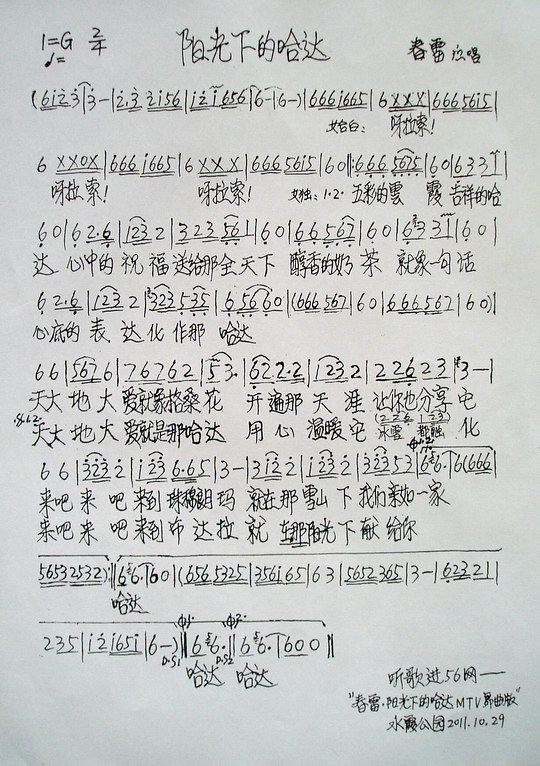 1=G 2/4 阳光下的哈达 春雷演唱
♩=
(6i23|3-|2.3 2i56|i2i656|6-|6-)|666i665|6XXX|6665615|
女合白: 呀拉索!
6 XXOX|666 i665|6 XXX|666 5615|60||:666 5675|60|633i|
呀拉索! 呀拉索! 女独:1·2·五彩的雲 霞 吉祥的哈
60|62·6|1232|323561|60|66567|60|6331|60|
达 心中的祝福送给那全天下 醇香的奶茶 就象一句话
62·6|1232|323535|65660|(666567|60|666567|60)|
心底的表达化作那 哈达
66|5676|76762|53·|622·2|1232|22623|3-|
天大地大爱就象格桑花 开遍那天涯让你也分享它
天大地大爱就是那哈达 用心温暖它 冰雪都融化
66|3232|i236·65|3-|3i22|i232|32353|66·|6(666|
来吧来吧来到珠穆朗玛 就在那雪山下我们亲如一家
来吧来吧来到布达拉 就在那阳光下献给你
56532532):||66·|60|(6565325|356165|63|5652365|3-|62321|
哈达
235|i2i65i|6-)||66·||66·|600||
D.S1 D.S2
哈达 哈达
听歌进56网——
"春雷·阳光下的哈达MTV舞曲版"
水霞公园2011.10.29